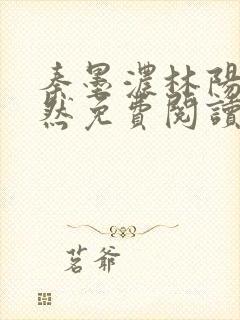 秦墨濃林陽
然免費閱讀
茗爺